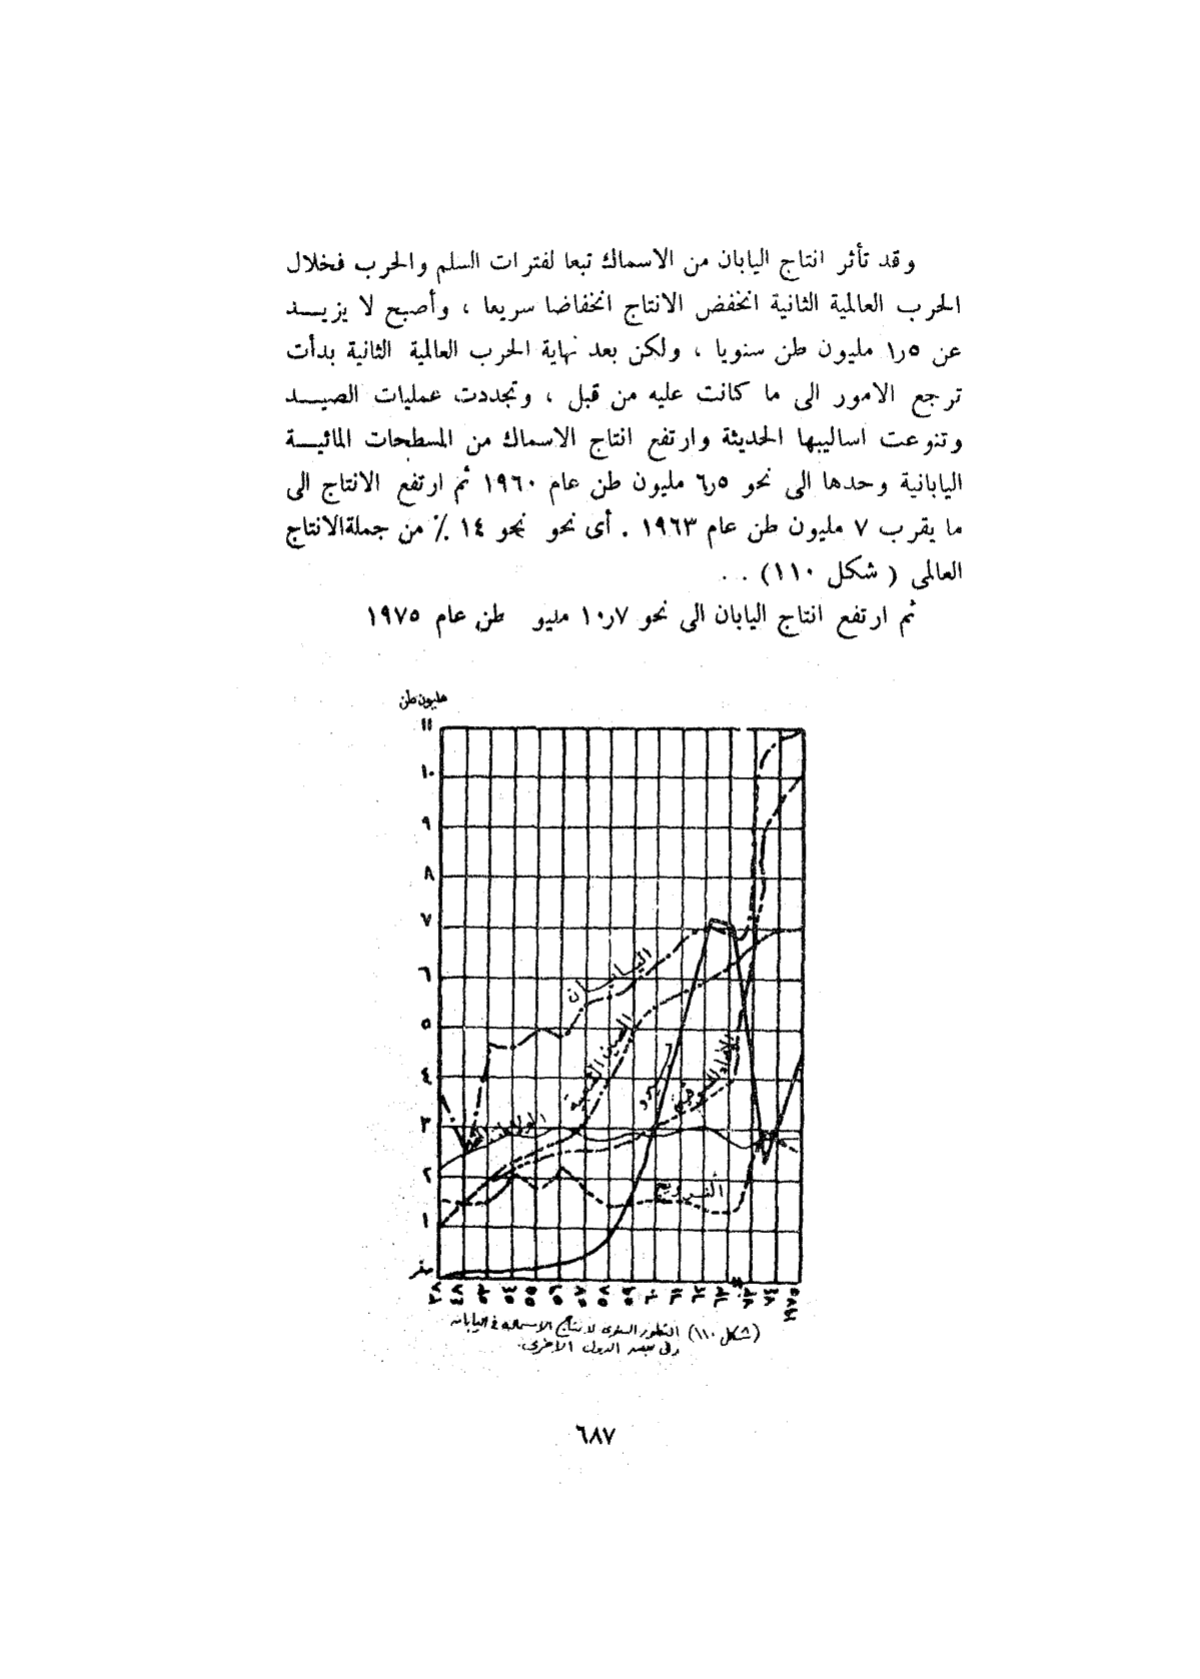 وقد تأثر انتاج اليابان من الاسماك تبعا لفترات السلم والحرب فخلال
الحرب العالمية الثانية انخفض الانتاج انخفاضا سريعا ، وأصبح لا يزيــد
عن ١٫٥ مليون طن سنويا ، ولكن بعد نهاية الحرب العالمية الثانية بدأت
ترجع الامور الى ما كانت عليه من قبل ، وتجددت عمليات الصيــد
وتنوعت اساليبها الحديثة وارتفع انتاج الاسماك من المسطحات المائيــة
اليابانية وحدها الى نحو ٦٫٥ مليون طن عام ١٩٦٠ ثم ارتفع الانتاج الى
ما يقرب ٧ مليون طن عام ١٩٦٣ . أى نحو نحو ١٤ ٪ من جملةالانتاج
العالمى ( شكل ١١٠) . .
ثم ارتفع انتاج اليابان الى نحو ١٠٫٧ مليو طن عام ١٩٧٥
مليون طن
١١
١٠
٩
٨
٧
٦
٥
٤
٣
٢
١
صفر
اليابان
الصين الشعبية
بيرو
الاتحاد السوفيتى
النرويج
٣٨ ٤٨ ٥٣ ٥٤ ٥٥ ٥٦ ٥٧ ٥٨ ٥٩ ٦٠ ٦١ ٦٢ ٦٣
(شكل ١١٠) التطور السنوى لانتاج الاسماك فى اليابان
وفى بعض الدول الاخرى.
٦٨٧